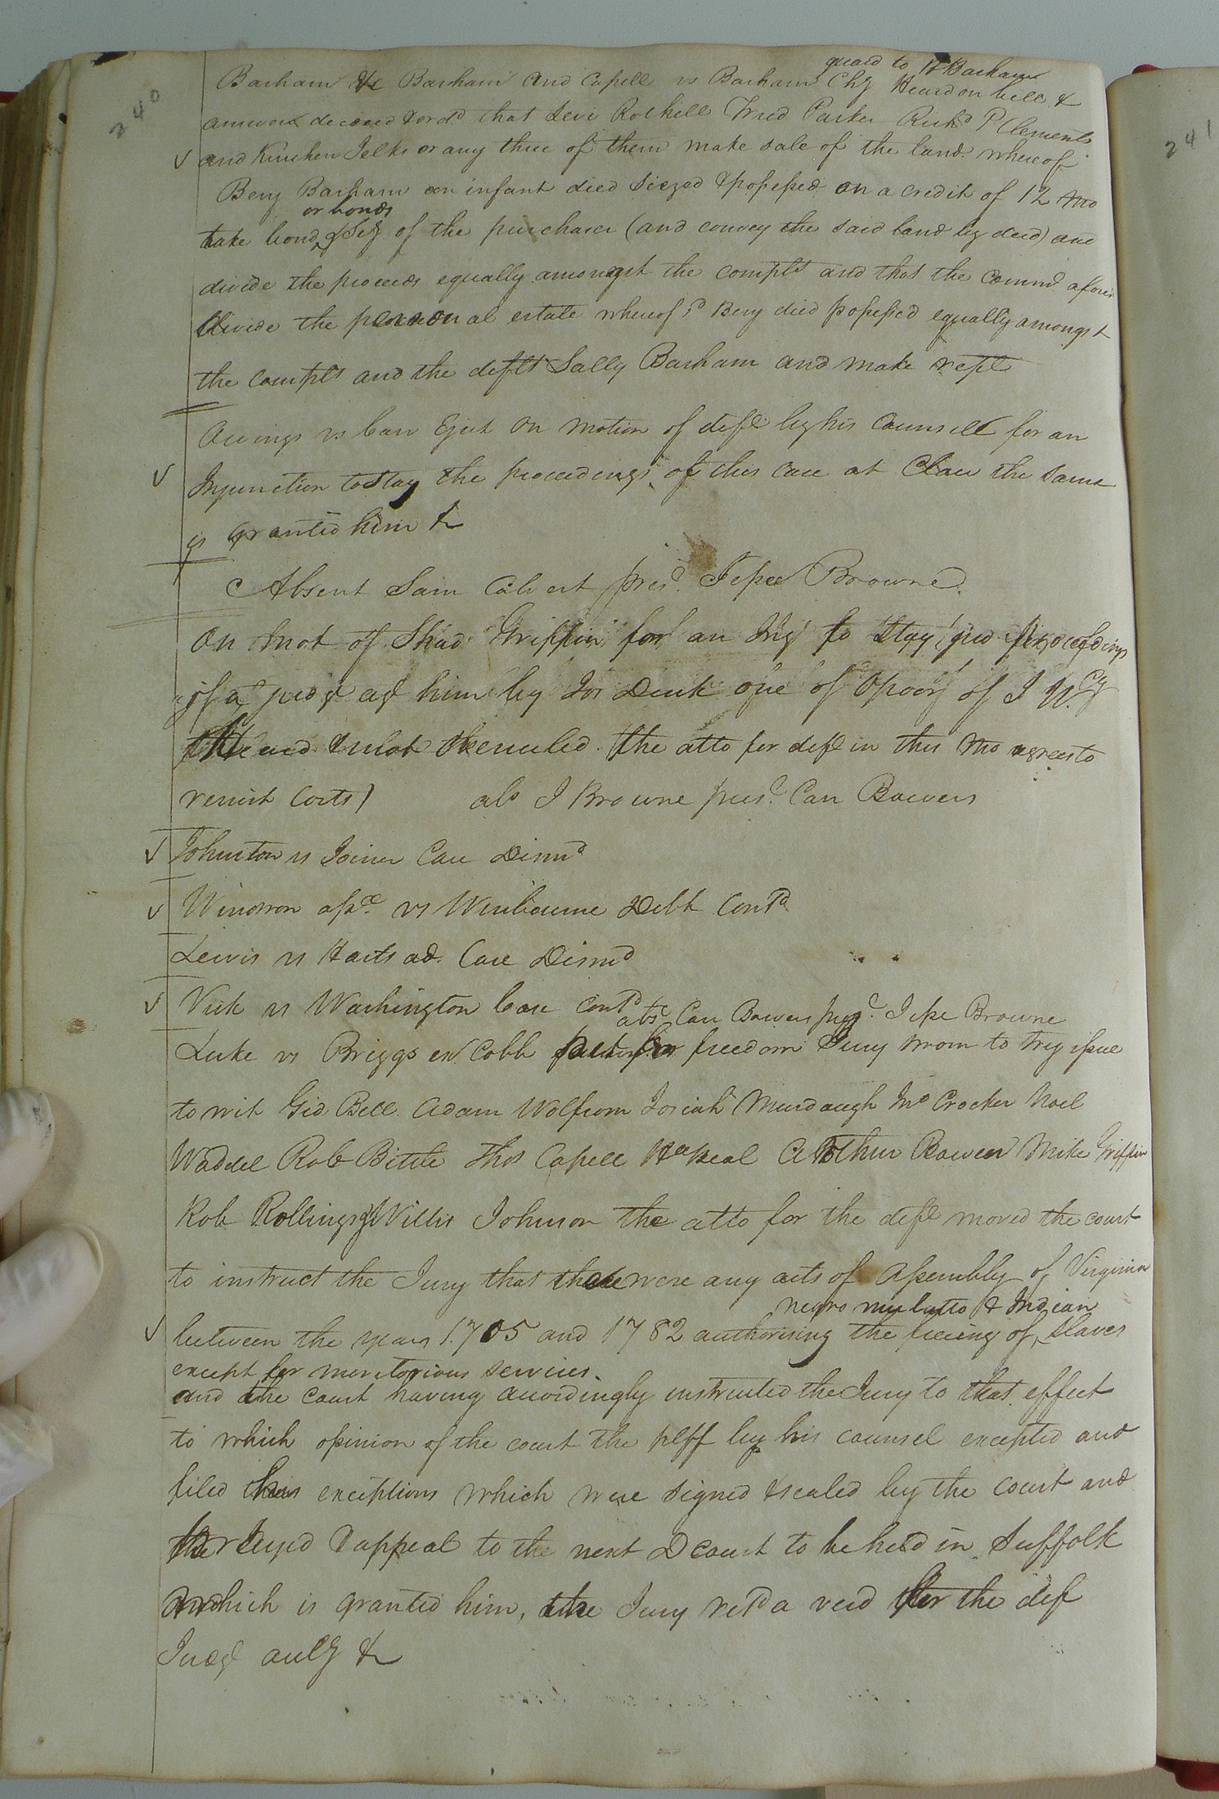 240
guard to
Barham &c Barham and Capell vs Barham Chy Heard on bill &
answer decreed & ordd that Levi Rochell Fred Parker Richd P Clements
and Kinchen Jelks or any three of them make sale of the land whereof
Benj Barham an infant died siezed & possessed on a credit of 12 mo
or bonds
take bond & Sey of the purchaser (and convey the said land by deed) and
divide the proceeds equally amongst the complts and that the commd afores
divide the personal estate whereof sd Benj died possessed equally amongst
the complts and the deft Sally Barham and make rept
Owings vs Carr Eject On motion of deft by his Counsell for an
Injunction to stay the proceedings of this case at Claw the same
is granted him &
Absent Sam Calvert presd Jesse Browne
On mot of Shad Griffin for an Inj to stay
of a judgt agt him by Jos Denk one of of J W
the atto for deft in this mo agrees to
remit Costs) abs J Browne presd Carr Bowers
Johnston vs Joiner Case Dismd
Windson asse vs Winbourne Debt Contd
Lewis vs Harts ad. Case Dismd
Vick vs Washington Case contd
abs Carr Bowers presd Jesse Browne
Luke vs Briggs ex Cobb for freedom Jury sworn to try issue
to wit Gid Bell Adam Wolfrom Josiah Murdaugh Jno Crocker Noel
Waddel Rob Bittle Thos Capell Arthur Bowen Mike Griffin
Rob Rollings & Willis Johnson the atto for the deft moved the court
to instruct the Jury that there were any acts of Assembly of Virginia
negro mulatto & Indian
between the years 1705 and 1782 authorising the freeing of slaves
except for meritorious services
and the court having accordingly instructed the Jury to that effect
to which opinion of the court the pltff by his counsel excepted and
filed his exceptions which were signed & sealed by the court and
prayed appeal to the next D court to be held in Suffolk
which is granted him, the Jury retd a verd for the def
Judgt &
241